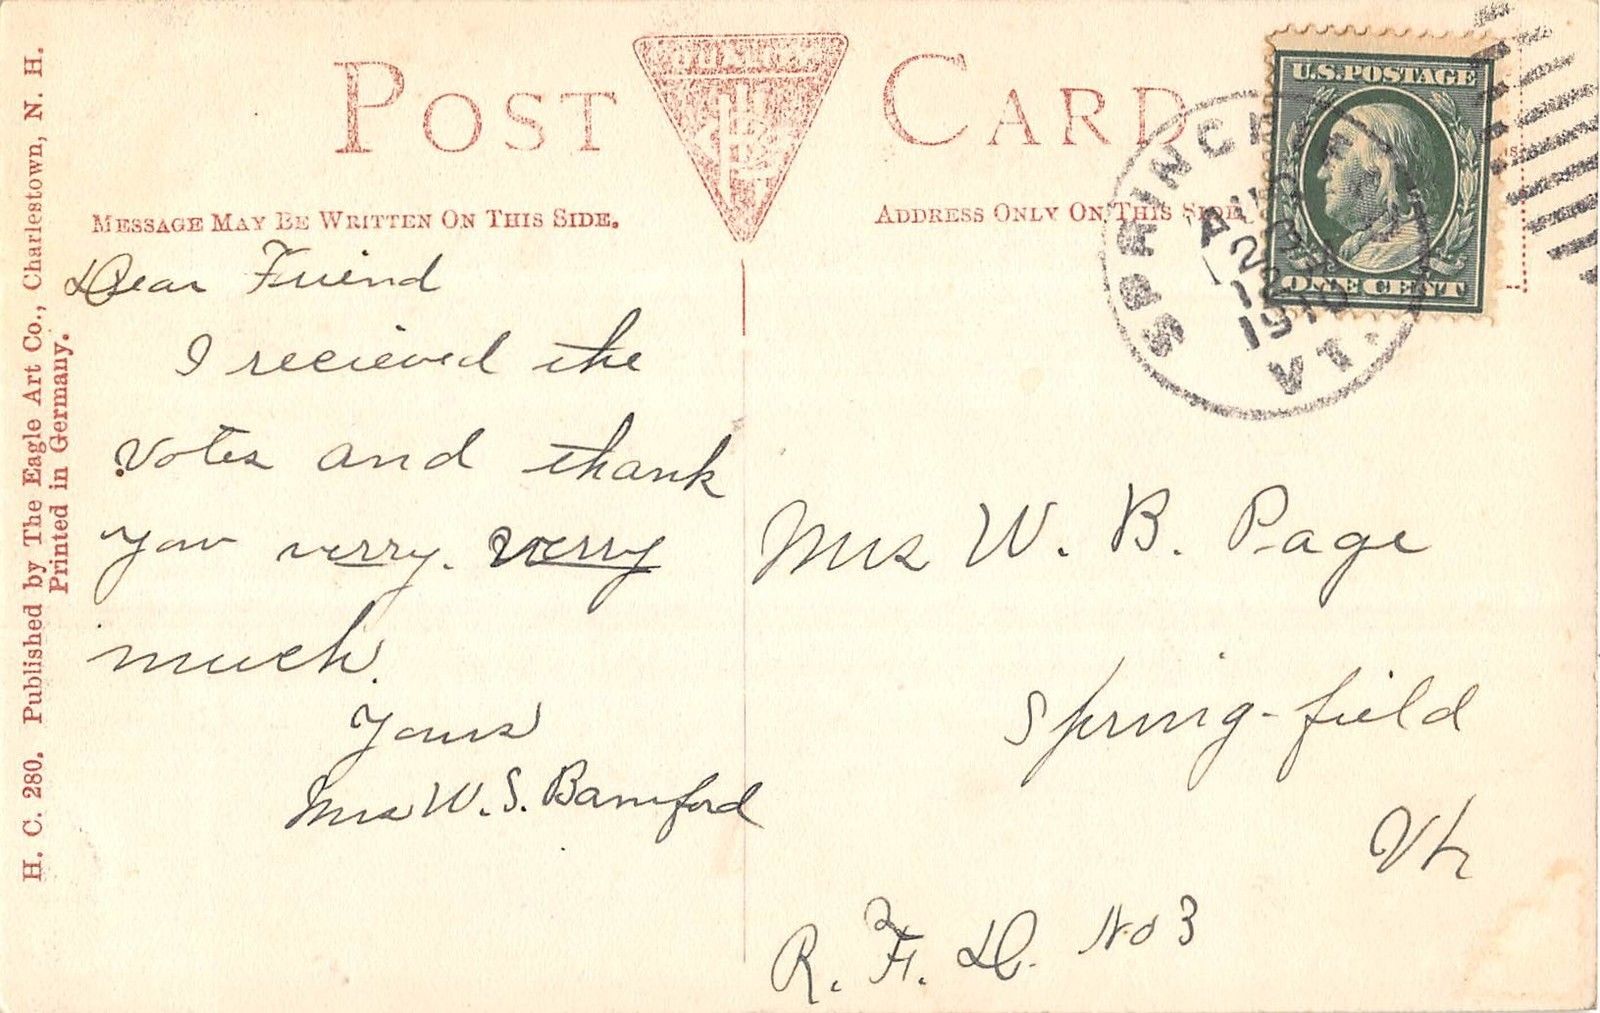 POST CARD
MESSAGE MAY BE WRITTEN ON THIS SIDE.
ADDRESS ONLY ON THIS SIDE
U.S. POSTAGE
ONE CENT
SPRINGFIELD
AUG
12
1910
VT.
H. C. 280. Published by The Eagle Art Co., Charlestown, N. H.
Printed in Germany.
Dear Friend
I recieved the
votes and thank
you verry. verry
much.
Yours
Mrs W. S. Bamford
Mrs W. B. Page
Spring-field
Vt
R. F. D. No 3